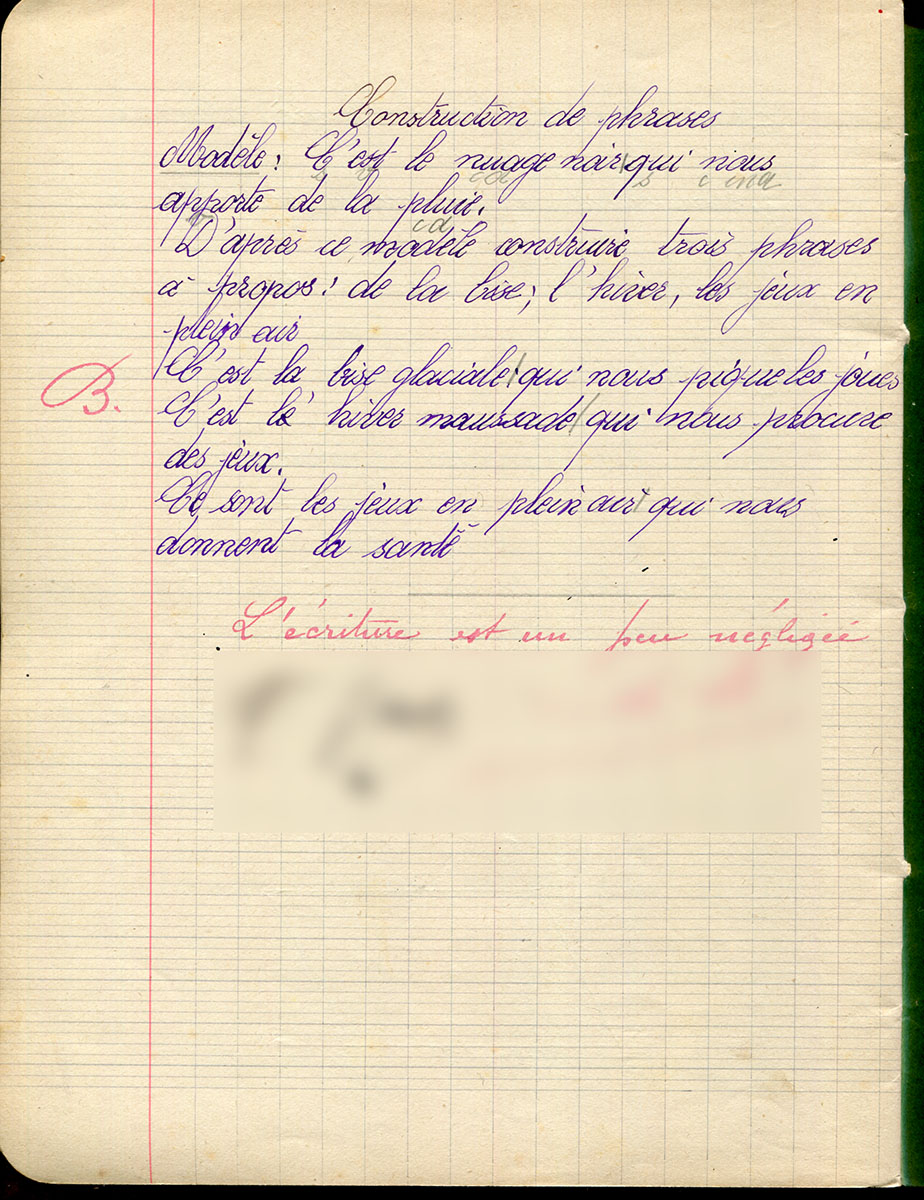 Construction de phrases
Modèle : C'est le nuage noir qui nous
apporte de la pluie.
D'après ce modèle construire trois phrases
à propos : de la bise ; l'hiver, les jeux en
plein air
C'est la bise glaciale qui nous pique les joues
B.
C'est le hiver maussade qui nous procure
des jeux.
Ce sont les jeux en plein air qui nous
donnent la santé
L'écriture est un peu négligée